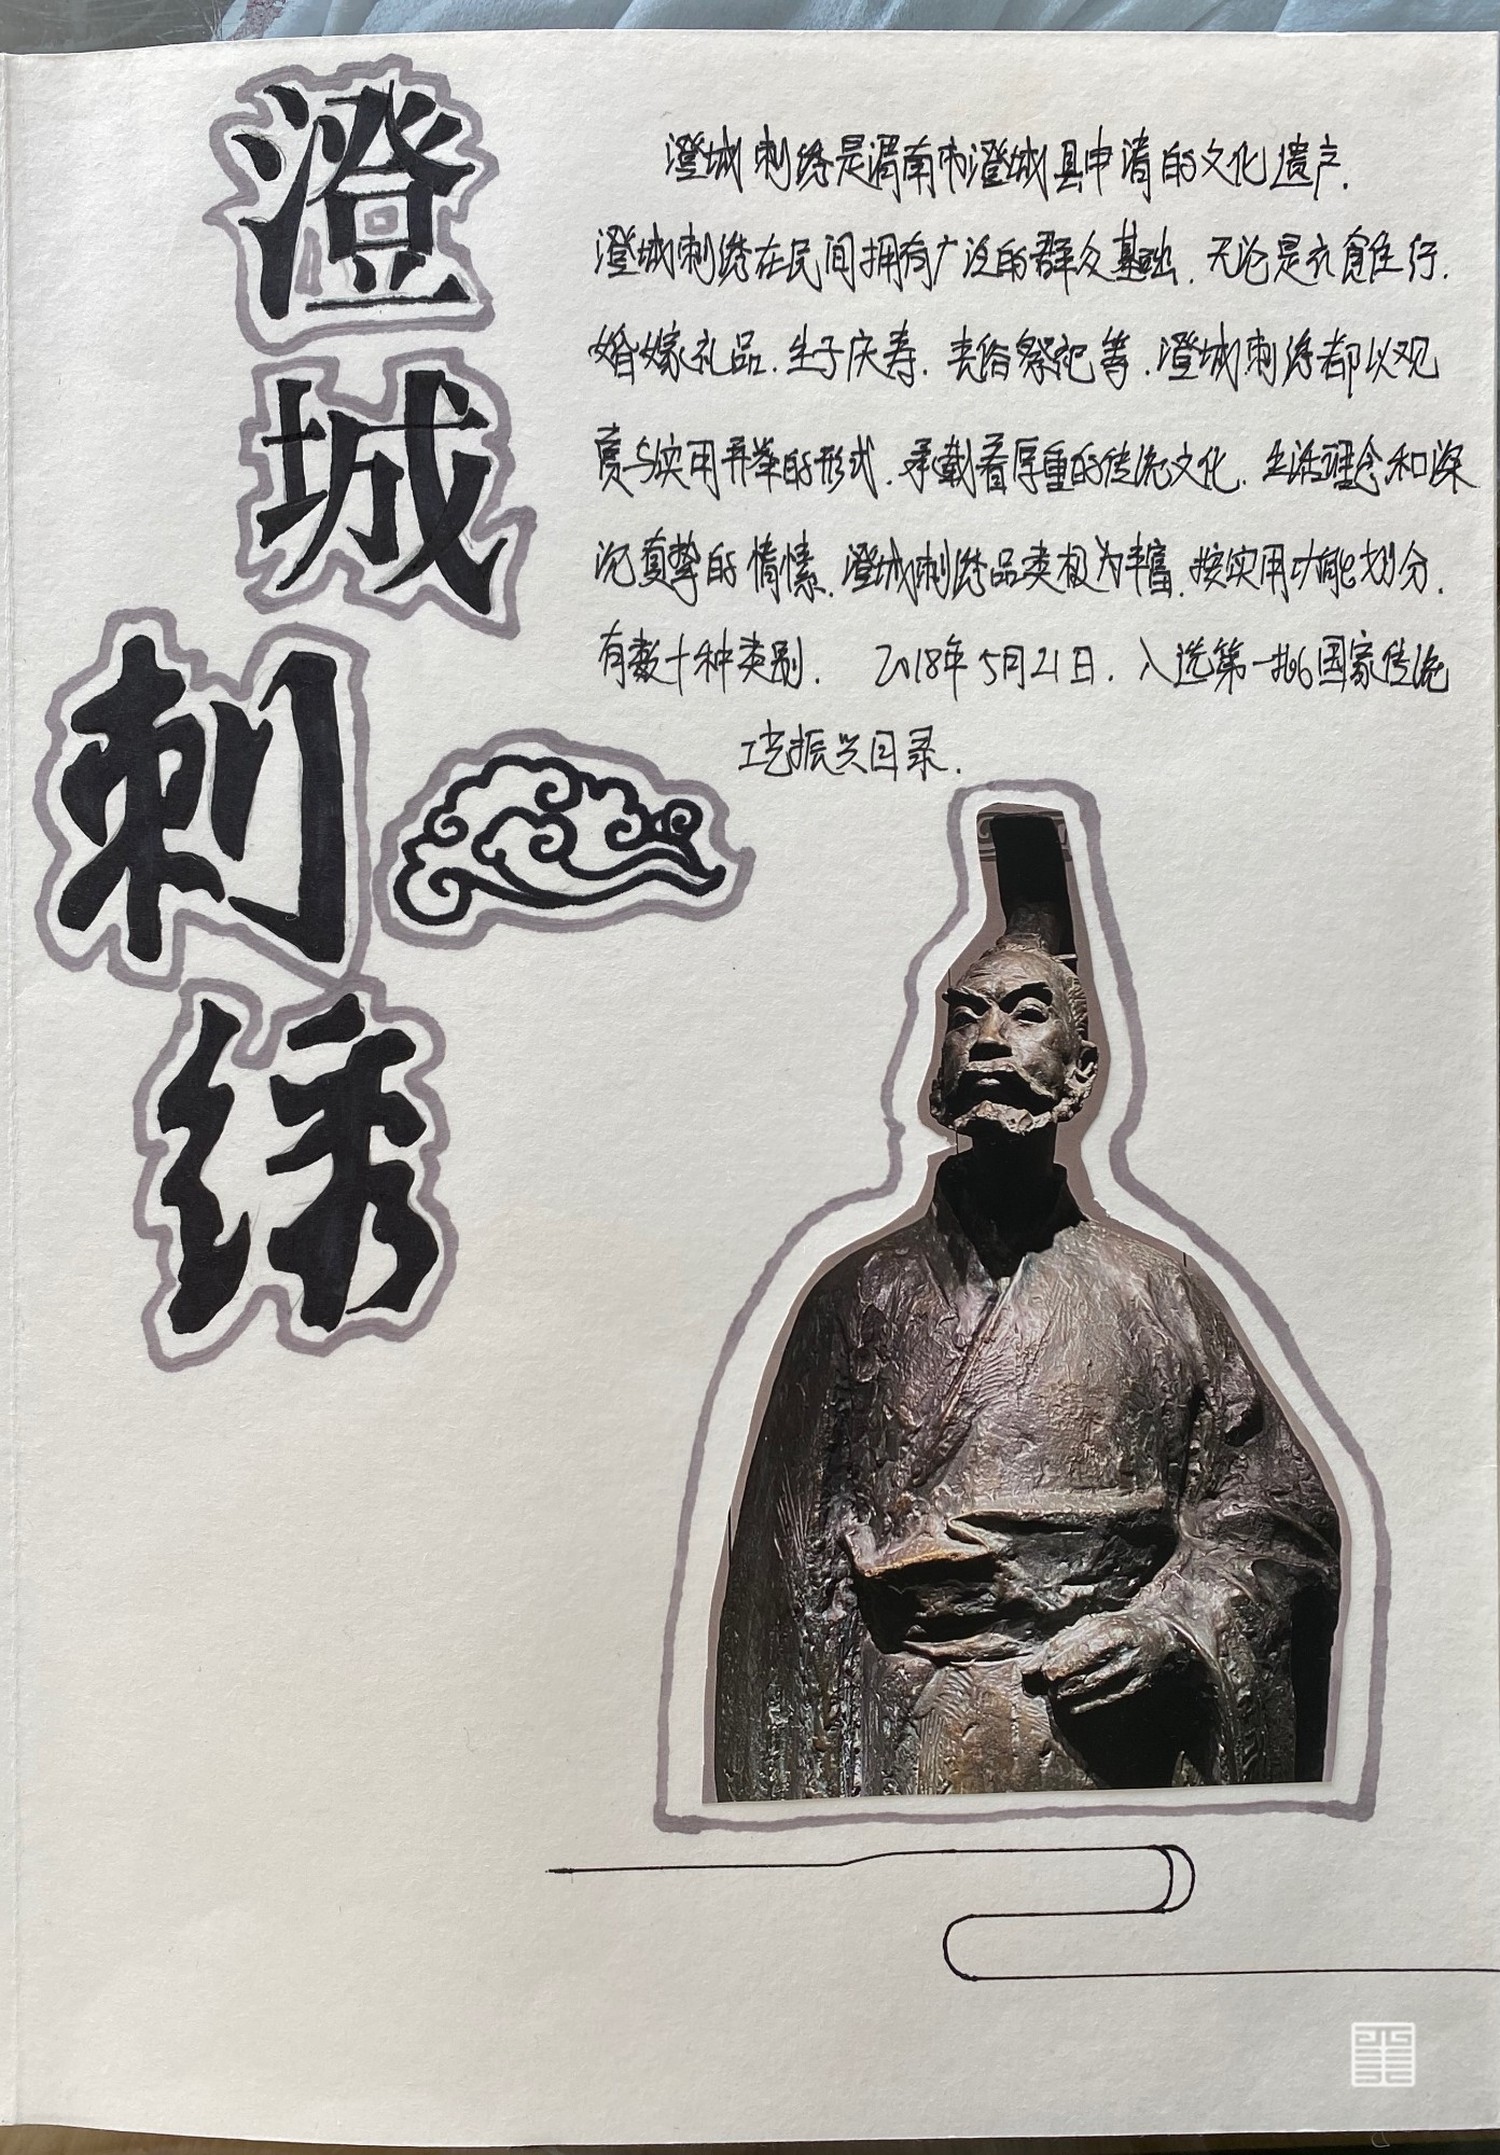 澄城刺绣
澄城刺绣是渭南市澄城县申请的文化遗产.
澄城刺绣在民间拥有广泛的群众基础.无论是衣食住行.
婚嫁礼品.生子庆寿.丧俗祭祀等.澄城刺绣都以观
赏与实用并举的形式.承载着厚重的传统文化.生活理念和深
沉真挚的情愫.澄城刺绣品类极为丰富.按实用功能划分.
有数十种类别. 2018年5月21日.入选第一批国家传统
工艺振兴目录.